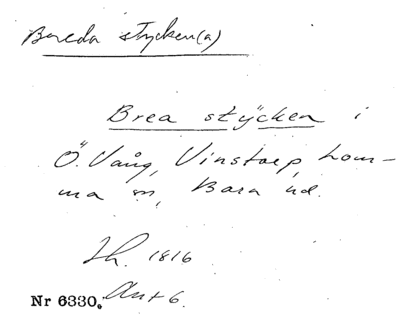 Breda stycken(a)
Brea stÿcken i
Ö. Vång, Vinstorp, Lom-
ma sn, Bara hd.
Lh. 1816
Nr 6330. Akt 6.